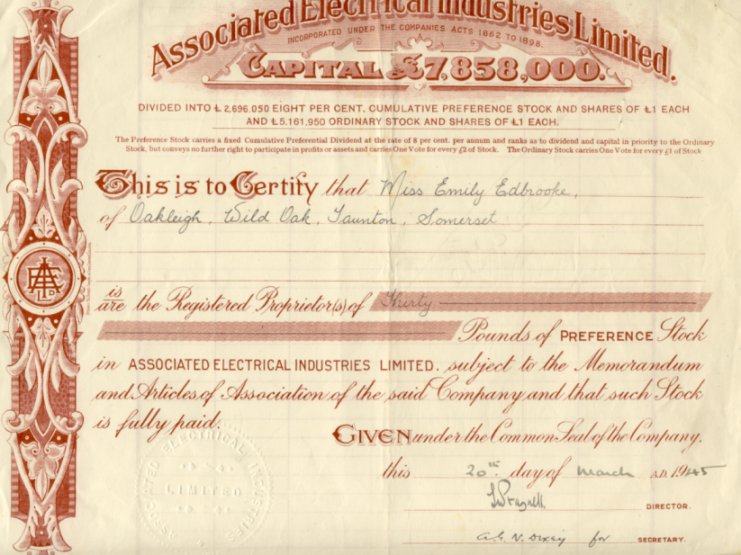 Associated Electrical Industries Limited.
INCORPORATED UNDER THE COMPANIES ACTS 1862 TO 1898.
CAPITAL £7,858,000.
DIVIDED INTO £2,696,050 EIGHT PER CENT. CUMULATIVE PREFERENCE STOCK AND SHARES OF £1 EACH
AND £5,161,950 ORDINARY STOCK AND SHARES OF £1 EACH.
The Preference Stock carries a fixed Cumulative Preferential Dividend at the rate of 8 per cent. per annum and ranks as to dividend and capital in priority to the Ordinary
Stock, but conveys no further right to participate in profits or assets and carries One Vote for every £2 of Stock. The Ordinary Stock carries One Vote for every £1 of Stock
This is to Certify that Miss Emily Edbrooke,
of Oakleigh, Wild Oak, Taunton, Somerset
is
are the Registered Proprietor(s) of Thirty
Pounds of PREFERENCE Stock
in ASSOCIATED ELECTRICAL INDUSTRIES LIMITED. subject to the Memorandum
and Articles of Association of the said Company and that such Stock
is fully paid.
GIVEN under the Common Seal of the Company.
this 20th day of March A.D. 1945
DIRECTOR.
for SECRETARY.
ASSOCIATED ELECTRICAL INDUSTRIES
LIMITED